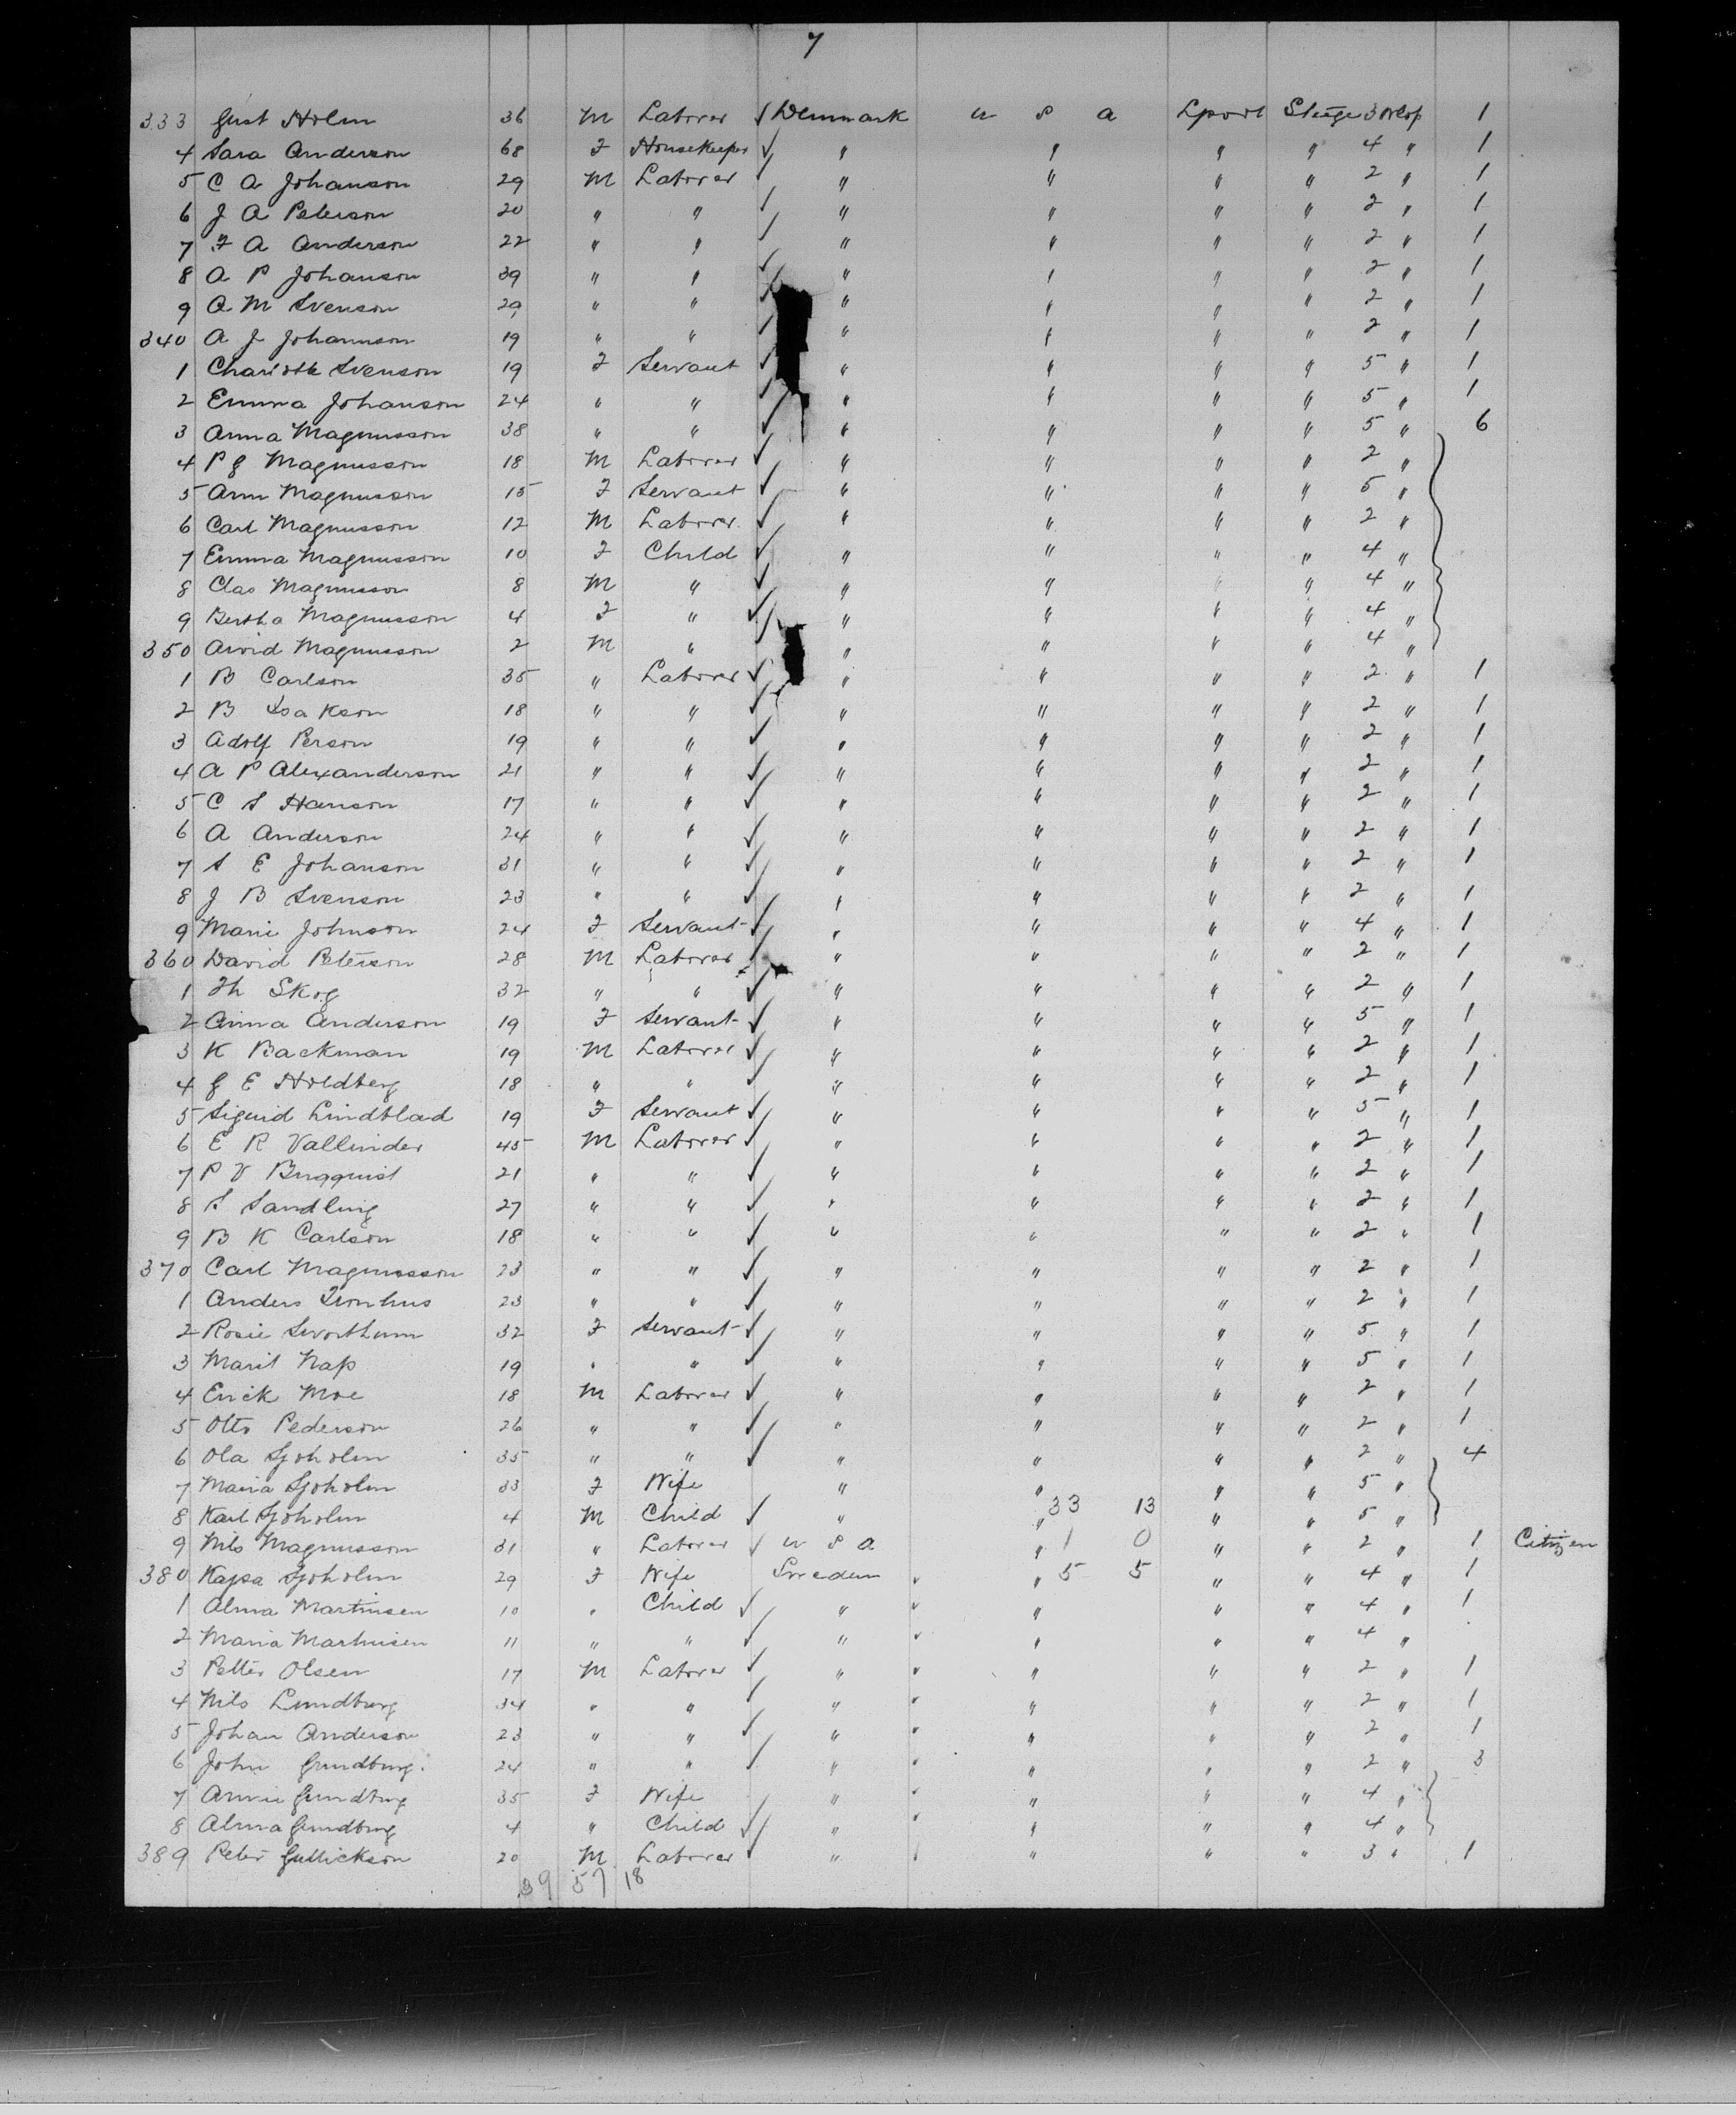 7
333 Gust Holm 36 M Laborer ✓ Denmark U S A Lpool Steege 3 Orlop 1
4 Sara Anderson 68 F Housekeeper ✓ " " " " 4 " 1
5 C A Johanson 29 M Laborer ✓ " " " " 2 " 1
6 J A Peterson 20 " " ✓ " " " " 2 " 1
7 F A Anderson 22 " " ✓ " " " " 2 " 1
8 A P Johanson 39 " " ✓ " " " " 2 " 1
9 A M Svenson 29 " " ✓ " " " " 2 " 1
340 A J Johannson 19 " " ✓ " " " " 2 " 1
1 Charlotte Svenson 19 F Servant ✓ " " " " 5 " 1
2 Emma Johanson 24 " " ✓ " " " " 5 " 1
3 Anna Magnusson 38 " " ✓ " " " " 5 " 6
4 P G Magnusson 18 M Laborer ✓ " " " " 2 "
5 Ann Magnusson 15 F Servant ✓ " " " " 5 "
6 Carl Magnusson 12 M Laborer ✓ " " " " 2 "
7 Emma Magnusson 10 F Child ✓ " " " " 4 "
8 Clas Magnusson 8 M " ✓ " " " " 4 "
9 Bertha Magnusson 4 F " ✓ " " " " 4 "
350 Arvid Magnusson 2 M " ✓ " " " " 4 "
1 B Carlson 35 " Laborer ✓ " " " " 2 " 1
2 B Isakson 18 " " ✓ " " " " 2 " 1
3 Adolf Person 19 " " ✓ " " " " 2 " 1
4 A P Alexanderson 21 " " ✓ " " " " 2 " 1
5 C S Hanson 17 " " ✓ " " " " 2 " 1
6 A Anderson 24 " " ✓ " " " " 2 " 1
7 S E Johanson 31 " " ✓ " " " " 2 " 1
8 J B Svenson 23 " " ✓ " " " " 2 " 1
9 Marie Johnson 24 F Servant ✓ " " " " 4 " 1
360 David Peterson 28 M Laborer ✓ " " " " 2 " 1
1 Th Skog 32 " " ✓ " " " " 2 " 1
2 Anna Anderson 19 F Servant ✓ " " " " 5 " 1
3 K Backman 19 M Laborer ✓ " " " " 2 " 1
4 G E Holdberg 18 " " ✓ " " " " 2 " 1
5 Sigrid Lindblad 19 F Servant ✓ " " " " 5 " 1
6 E R Vallinder 45 M Laborer ✓ " " " " 2 " 1
7 P V Bergquist 21 " " ✓ " " " " 2 " 1
8 S Sandling 27 " " ✓ " " " " 2 " 1
9 B K Carlson 18 " " ✓ " " " " 2 " 1
370 Carl Magnusson 23 " " ✓ " " " " 2 " 1
1 Anders 23 " " ✓ " " " " 2 " 1
2 Rosie 32 F Servant ✓ " " " " 5 " 1
3 Marit Nap 19 " " ✓ " " " " 5 " 1
4 Erick Moe 18 M Laborer ✓ " " " " 2 " 1
5 Otto Pederson 26 " " ✓ " " " " 2 " 1
6 Ola Sjoholm 35 " " ✓ " " " " 2 " 4
7 Maria Sjoholm 33 F Wife " " " " 5 "
8 Karl Sjoholm 4 M Child ✓ " " 33 13 " " 5 "
9 Nils Magnusson 31 " Laborer ✓ U S A " 1 0 " " 2 " 1 Citizen
380 Kajsa Sjoholm 29 F Wife Sweden " 5 5 " " 4 " 1
1 Alma Martinsen 10 " Child ✓ " " " " 4 " 1
2 Maria Martinsen 11 " " ✓ " " " " 4 "
3 Petter Olsen 17 M Laborer ✓ " " " " 2 " 1
4 Nils Lundburg 34 " " ✓ " " " " 2 " 1
5 Johan Anderson 23 " " ✓ " " " " 2 " 1
6 John Grundburg 24 " " ✓ " " " " 2 " 3
7 Annie Grundburg 35 F Wife " " " " 4 "
8 Alma Grundburg 4 " Child ✓ " " " " 4 "
389 Peter Gullickson 20 M Laborer ✓ " " " " 3 " 1
39 57 18